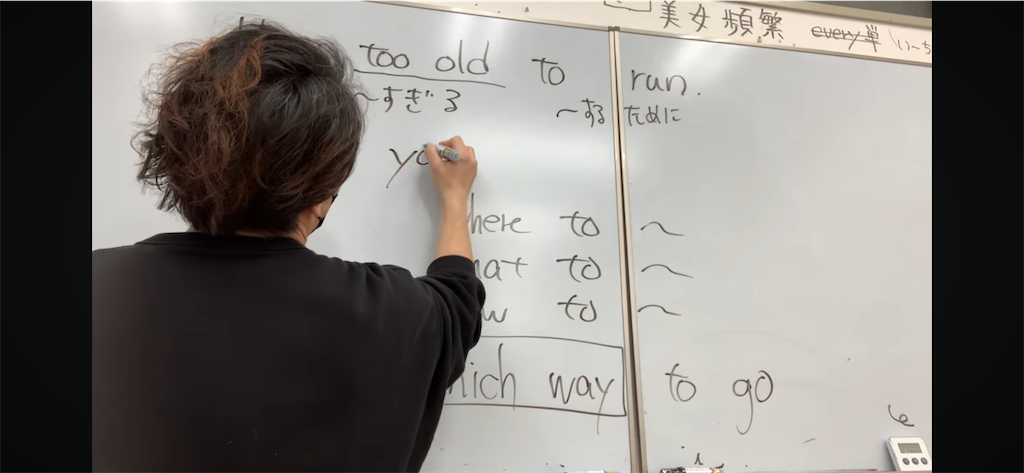 美女頻繁 every単
too old to run.
〜すぎる 〜するために
yo
here to 〜
at to 〜
w to 〜
hich way to go